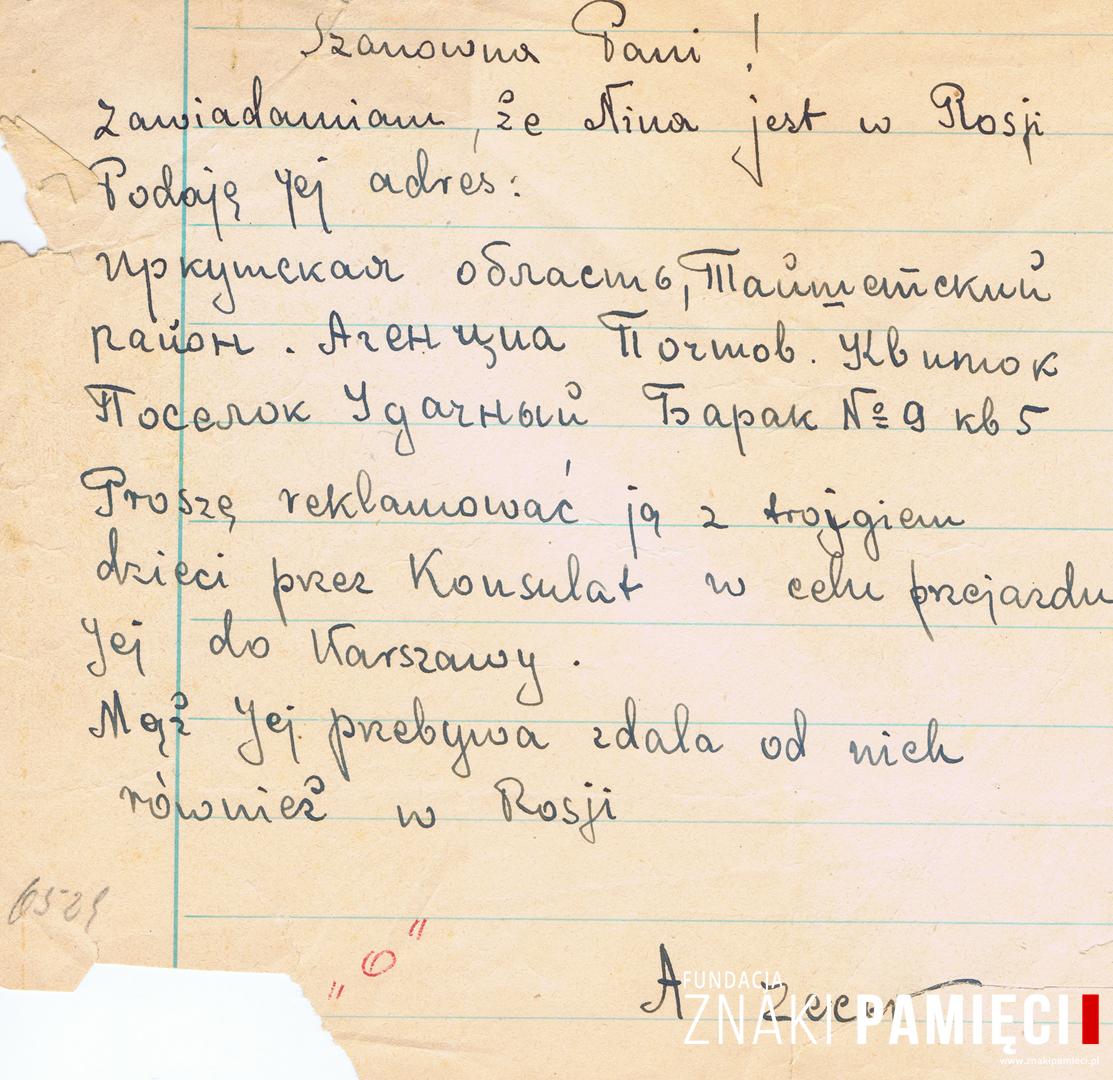 Szanowna Pani !
Zawiadamiam, że Nina jest w Rosji
Podaję Jej adres:
Иркутская область, Тайшетский
район. Агенциа Почтов. Квиток
Поселок Удачный Барак № 9 кв 5
Proszę reklamować ją z trojgiem
dzieci przez Konsulat w celu przejazdu
Jej do Warszawy.
Mąż Jej przebywa zdala od nich
również w Rosji
„o"
A
FUNDACJA
ZNAKI PAMIĘCI
www.znakipamieci.pl